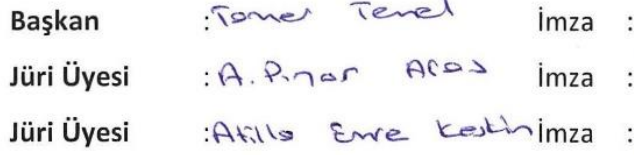 Başkan :Tamer Temel İmza :
Jüri Üyesi :A. Pınar Acas İmza :
Jüri Üyesi :Atilla Emre Keskin İmza :